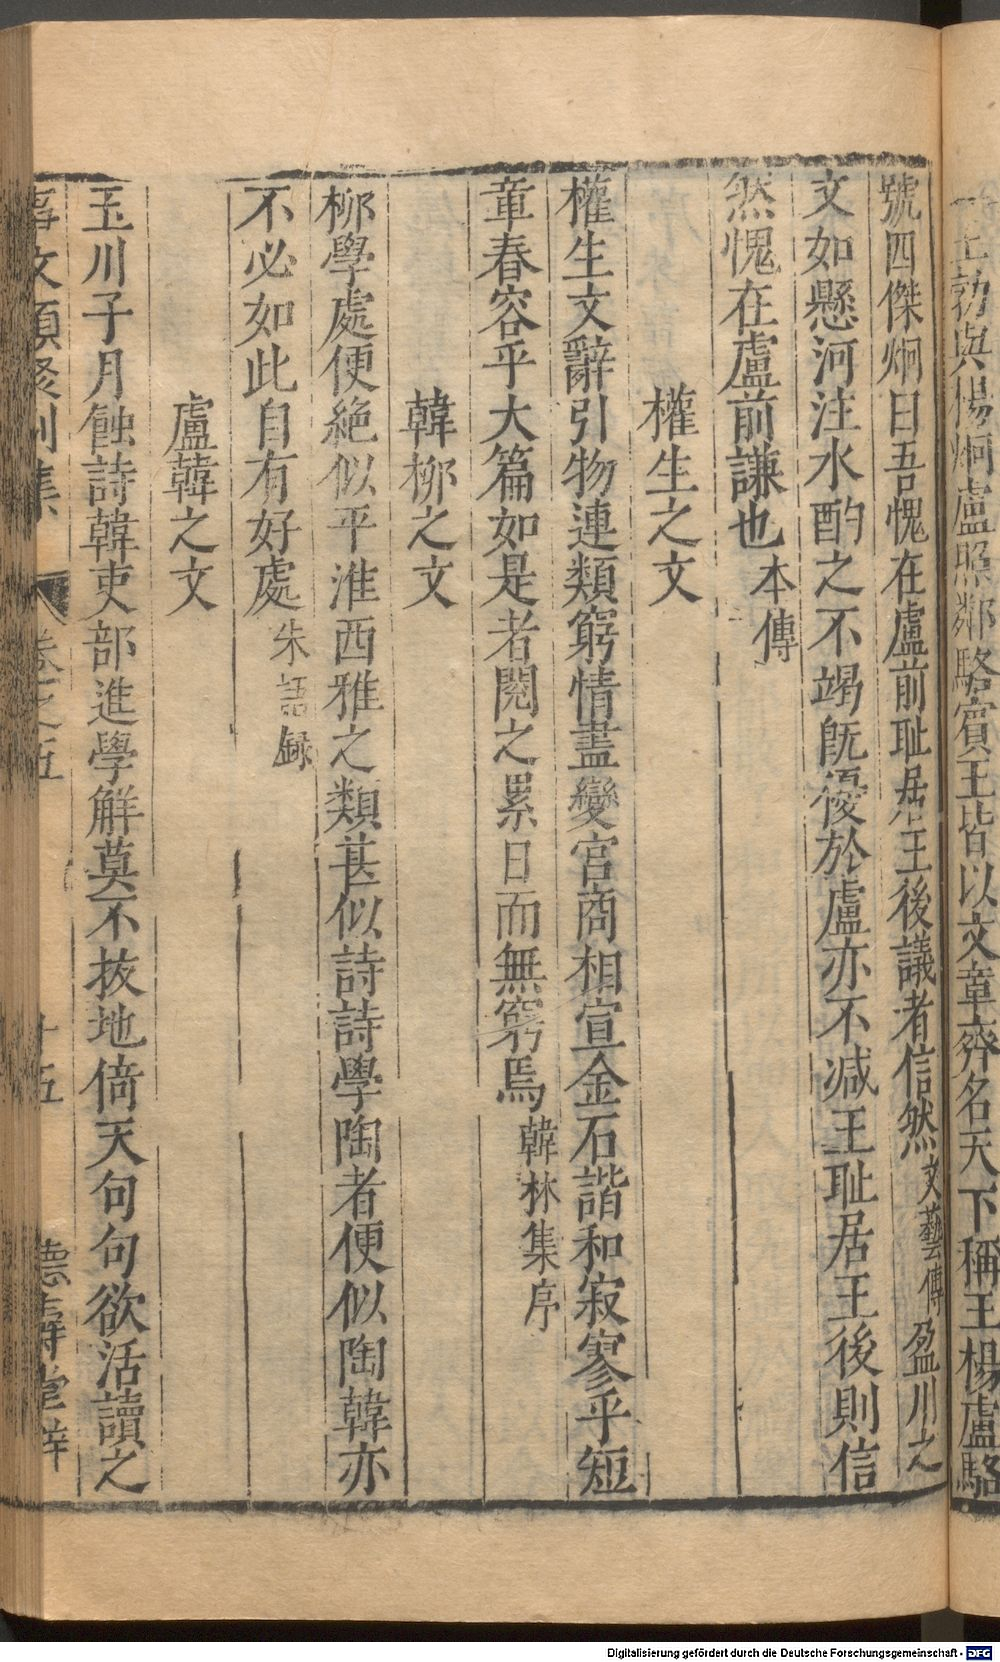 王勃與楊炯盧照鄰駱賓王皆以文章齊名天下稱王楊盧駱
號四傑炯曰吾愧在盧前耻居王後議者信然文藝傳盈川之
文如懸河注水酌之不竭旣優於盧亦不减王耻居王後則信
然愧在盧前謙也本傳
權生之文
權生文辭引物連類窮情盡變宫商相宣金石諧和寂寥乎短
章舂容乎大篇如是者閱之累日而無窮焉韓林集序
韓柳之文
柳學處便絶似平淮西雅之類甚似詩詩學陶者便似陶韓亦
不必如此自有好處朱語録
盧韓之文
玉川子月蝕詩韓吏部進學解莫不拔地倚天句句欲活讀之
事文類聚別集 卷之五 十五 德壽堂梓
Digitalisierung gefördert durch die Deutsche Forschungsgemeinschaft - DFG